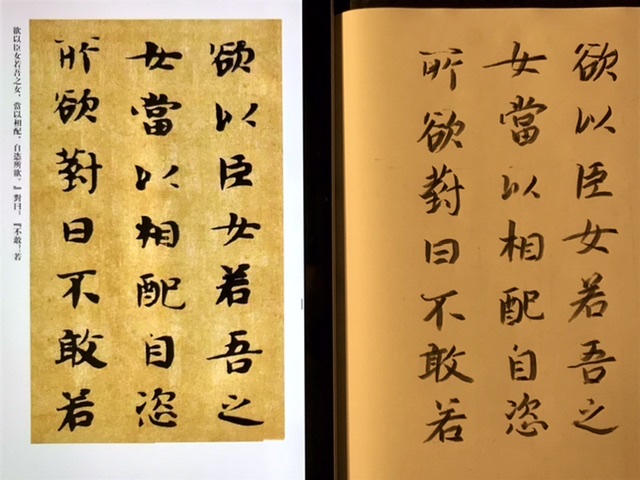 欲以臣女若吾之
女當以相配自恣
所欲對曰不敢若
欲以臣女若吾之女，當以相配，自恣所欲。』對曰：『不敢！若
欲以臣女若吾之
女當以相配自恣
所欲對曰不敢若